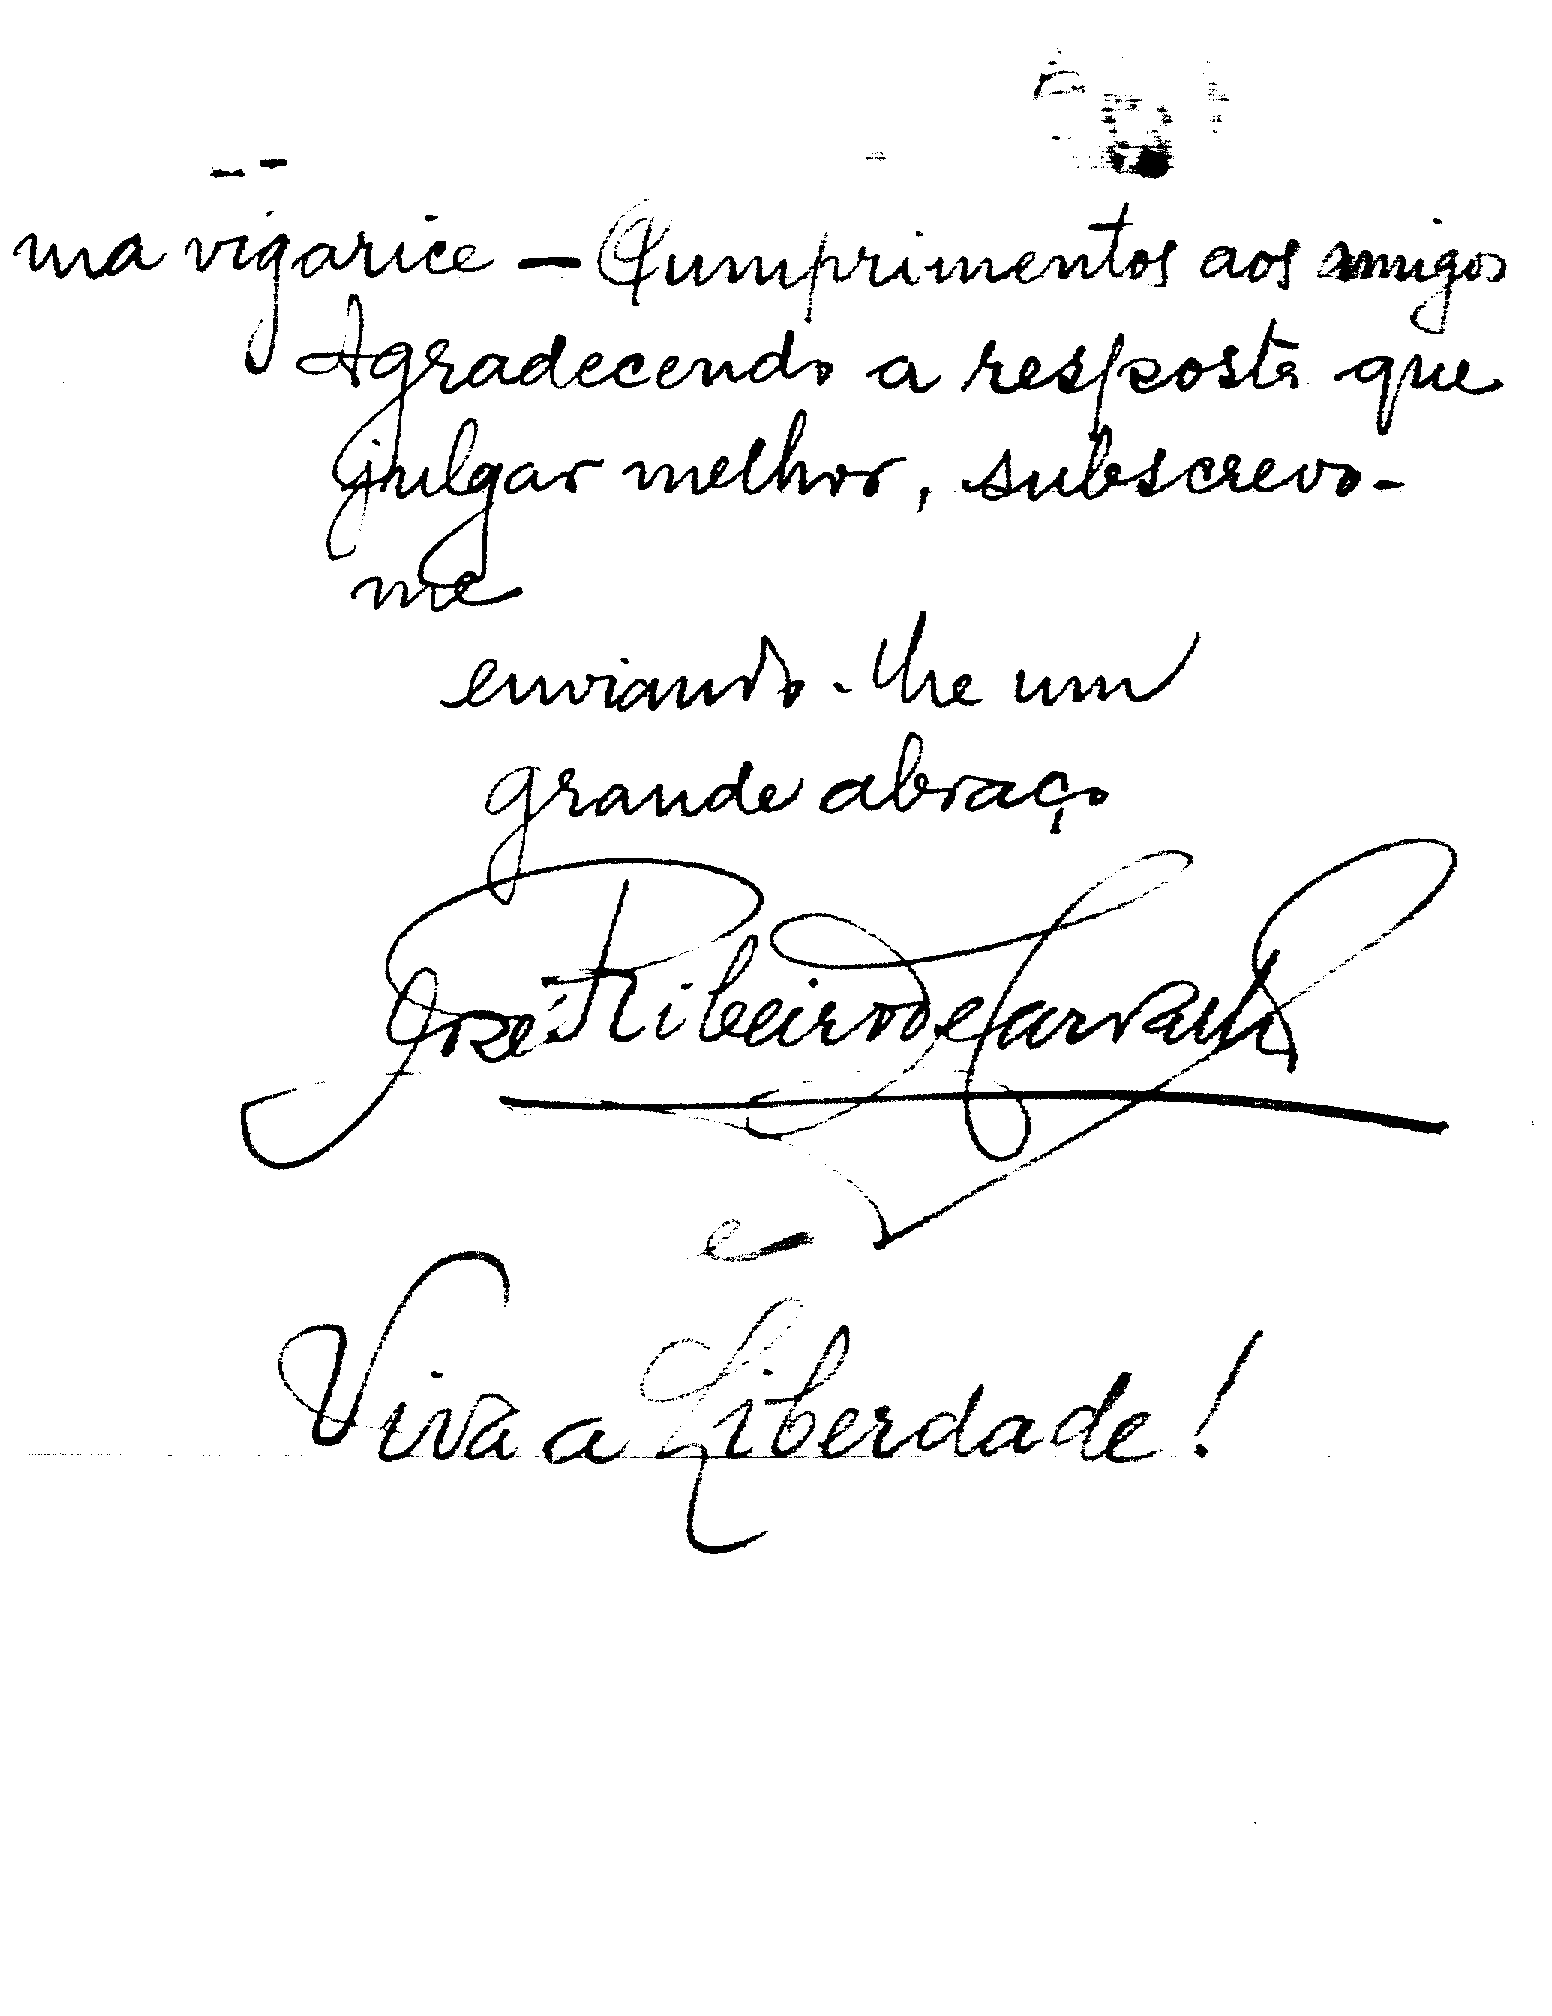 ma vigarice — Cumprimentos aos amigos
Agradecendo a resposta que
julgar melhor, subscrevo-
me
enviando-lhe um
grande abraço
José Ribeiro de Carvalho
e
Viva a Liberdade!